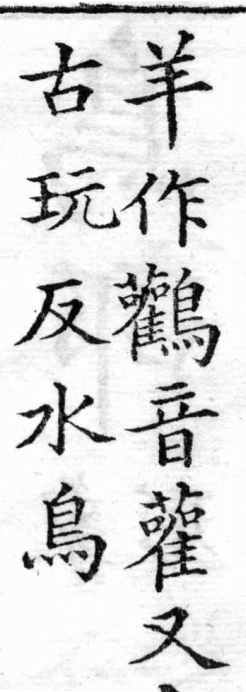 羊作鸛音雚又
古玩反水鳥